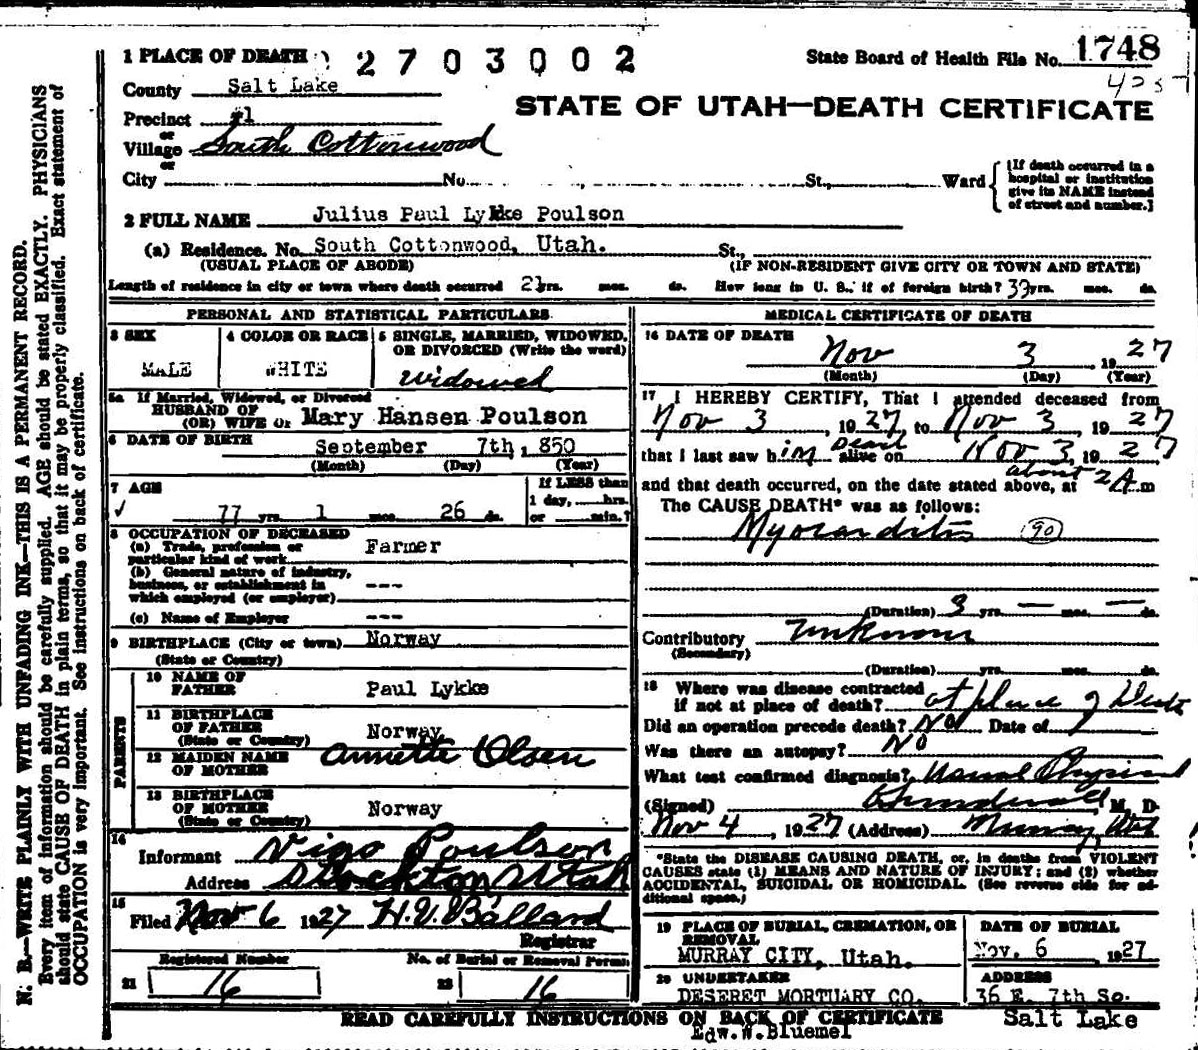 1 PLACE OF DEATH 2703002
State Board of Health File No. 1748
County Salt Lake
STATE OF UTAH—DEATH CERTIFICATE
Precinct #1
or
Village South Cottonwood
or
City No. St., Ward
[If death occurred in a
hospital or institution
give its NAME instead
of street and number.]
2 FULL NAME Julius Paul Lykke Poulson
(a) Residence. No. South Cottonwood, Utah. St.,
(USUAL PLACE OF ABODE) (IF NON-RESIDENT GIVE CITY OR TOWN AND STATE)
Length of residence in city or town where death occurred yrs. mos. ds. How long in U. S., if of foreign birth? yrs. mos. ds.
PERSONAL AND STATISTICAL PARTICULARS
3 SEX
MALE
4 COLOR OR RACE
WHITE
5 SINGLE, MARRIED, WIDOWED,
OR DIVORCED (Write the word)
widowed
5a If Married, Widowed, or Divorced
HUSBAND OF
(OR) WIFE OF Mary Hansen Poulson
6 DATE OF BIRTH September 7th, 850
(Month) (Day) (Year)
7 AGE
✓ 77 yrs. 1 mos. 26 ds.
If LESS than
1 day, hrs.
or min.?
8 OCCUPATION OF DECEASED
(a) Trade, profession or
particular kind of work Farmer
(b) General nature of industry,
business, or establishment in
which employed (or employer) ---
(c) Name of Employer ---
9 BIRTHPLACE (City or town) Norway
(State or Country)
PARENTS
10 NAME OF
FATHER Paul Lykke
11 BIRTHPLACE
OF FATHER
(State or Country) Norway
12 MAIDEN NAME
OF MOTHER Annette Olsen
13 BIRTHPLACE
OF MOTHER
(State or Country) Norway
14
Informant Vigo Poulson
Address Stockton Utah
15
Filed Nov 6 1927 H.V. Ballard
Registrar
Registered Number
21 16
No. of Burial or Removal Permit
22 16
MEDICAL CERTIFICATE OF DEATH
16 DATE OF DEATH
Nov 3 1927
(Month) (Day) (Year)
17 I HEREBY CERTIFY, That I attended deceased from
Nov 3, 1927, to Nov 3, 1927
that I last saw him Dead alive on Nov 3, 1927
and that death occurred, on the date stated above, at about 2 A.m
The CAUSE DEATH* was as follows:
Myocarditis 90
(Duration) 3 yrs. — mos. — ds.
Contributory Unknown
(Secondary)
(Duration) yrs. mos. ds.
18 Where was disease contracted
if not at place of death? at place of Death
Did an operation precede death? No Date of
Was there an autopsy? No
What test confirmed diagnosis? Physical
(Signed) M. D.
Nov 4, 1927 (Address) Murray, Utah
*State the DISEASE CAUSING DEATH, or, in deaths from VIOLENT
CAUSES state (1) MEANS AND NATURE OF INJURY; and (2) whether
ACCIDENTAL, SUICIDAL OR HOMICIDAL. (See reverse side for ad-
ditional space.)
19 PLACE OF BURIAL, CREMATION, OR
REMOVAL
MURRAY CITY, Utah.
DATE OF BURIAL
Nov. 6 1927
20 UNDERTAKER
DESERET MORTUARY CO.
ADDRESS
36 E. 7th So.
Salt Lake
READ CAREFULLY INSTRUCTIONS ON BACK OF CERTIFICATE
Edw.W.Bluemel
N. B.—WRITE PLAINLY WITH UNFADING INK—THIS IS A PERMANENT RECORD.
Every item of information should be carefully supplied. AGE should be stated EXACTLY. PHYSICIANS
should state CAUSE OF DEATH in plain terms, so that it may be properly classified. Exact statement of
OCCUPATION is very important. See instructions on back of certificate.